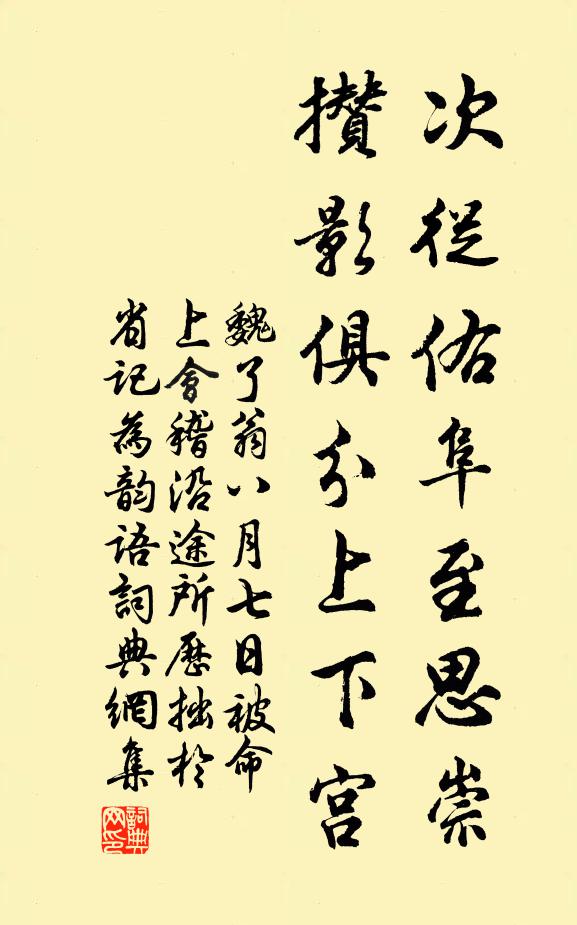 次從佑阜至思崇
攅影俱分上下宫
魏了翁八月七日被命
上會稽沿途所歷拙於
省記為韵語詞典網集
詞典
网印